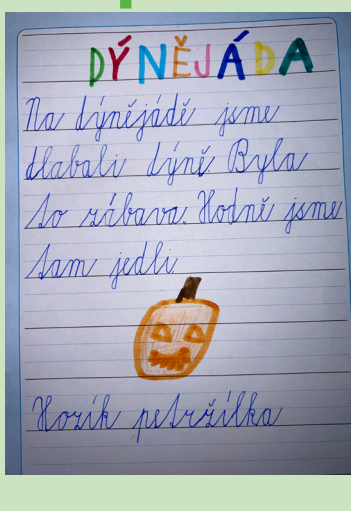 DÝNĚJÁDA
Na dýnějádě jsme
dlabali dýně. Byla
to zábava. Hodně jsme
tam jedli
Hozík petržílka